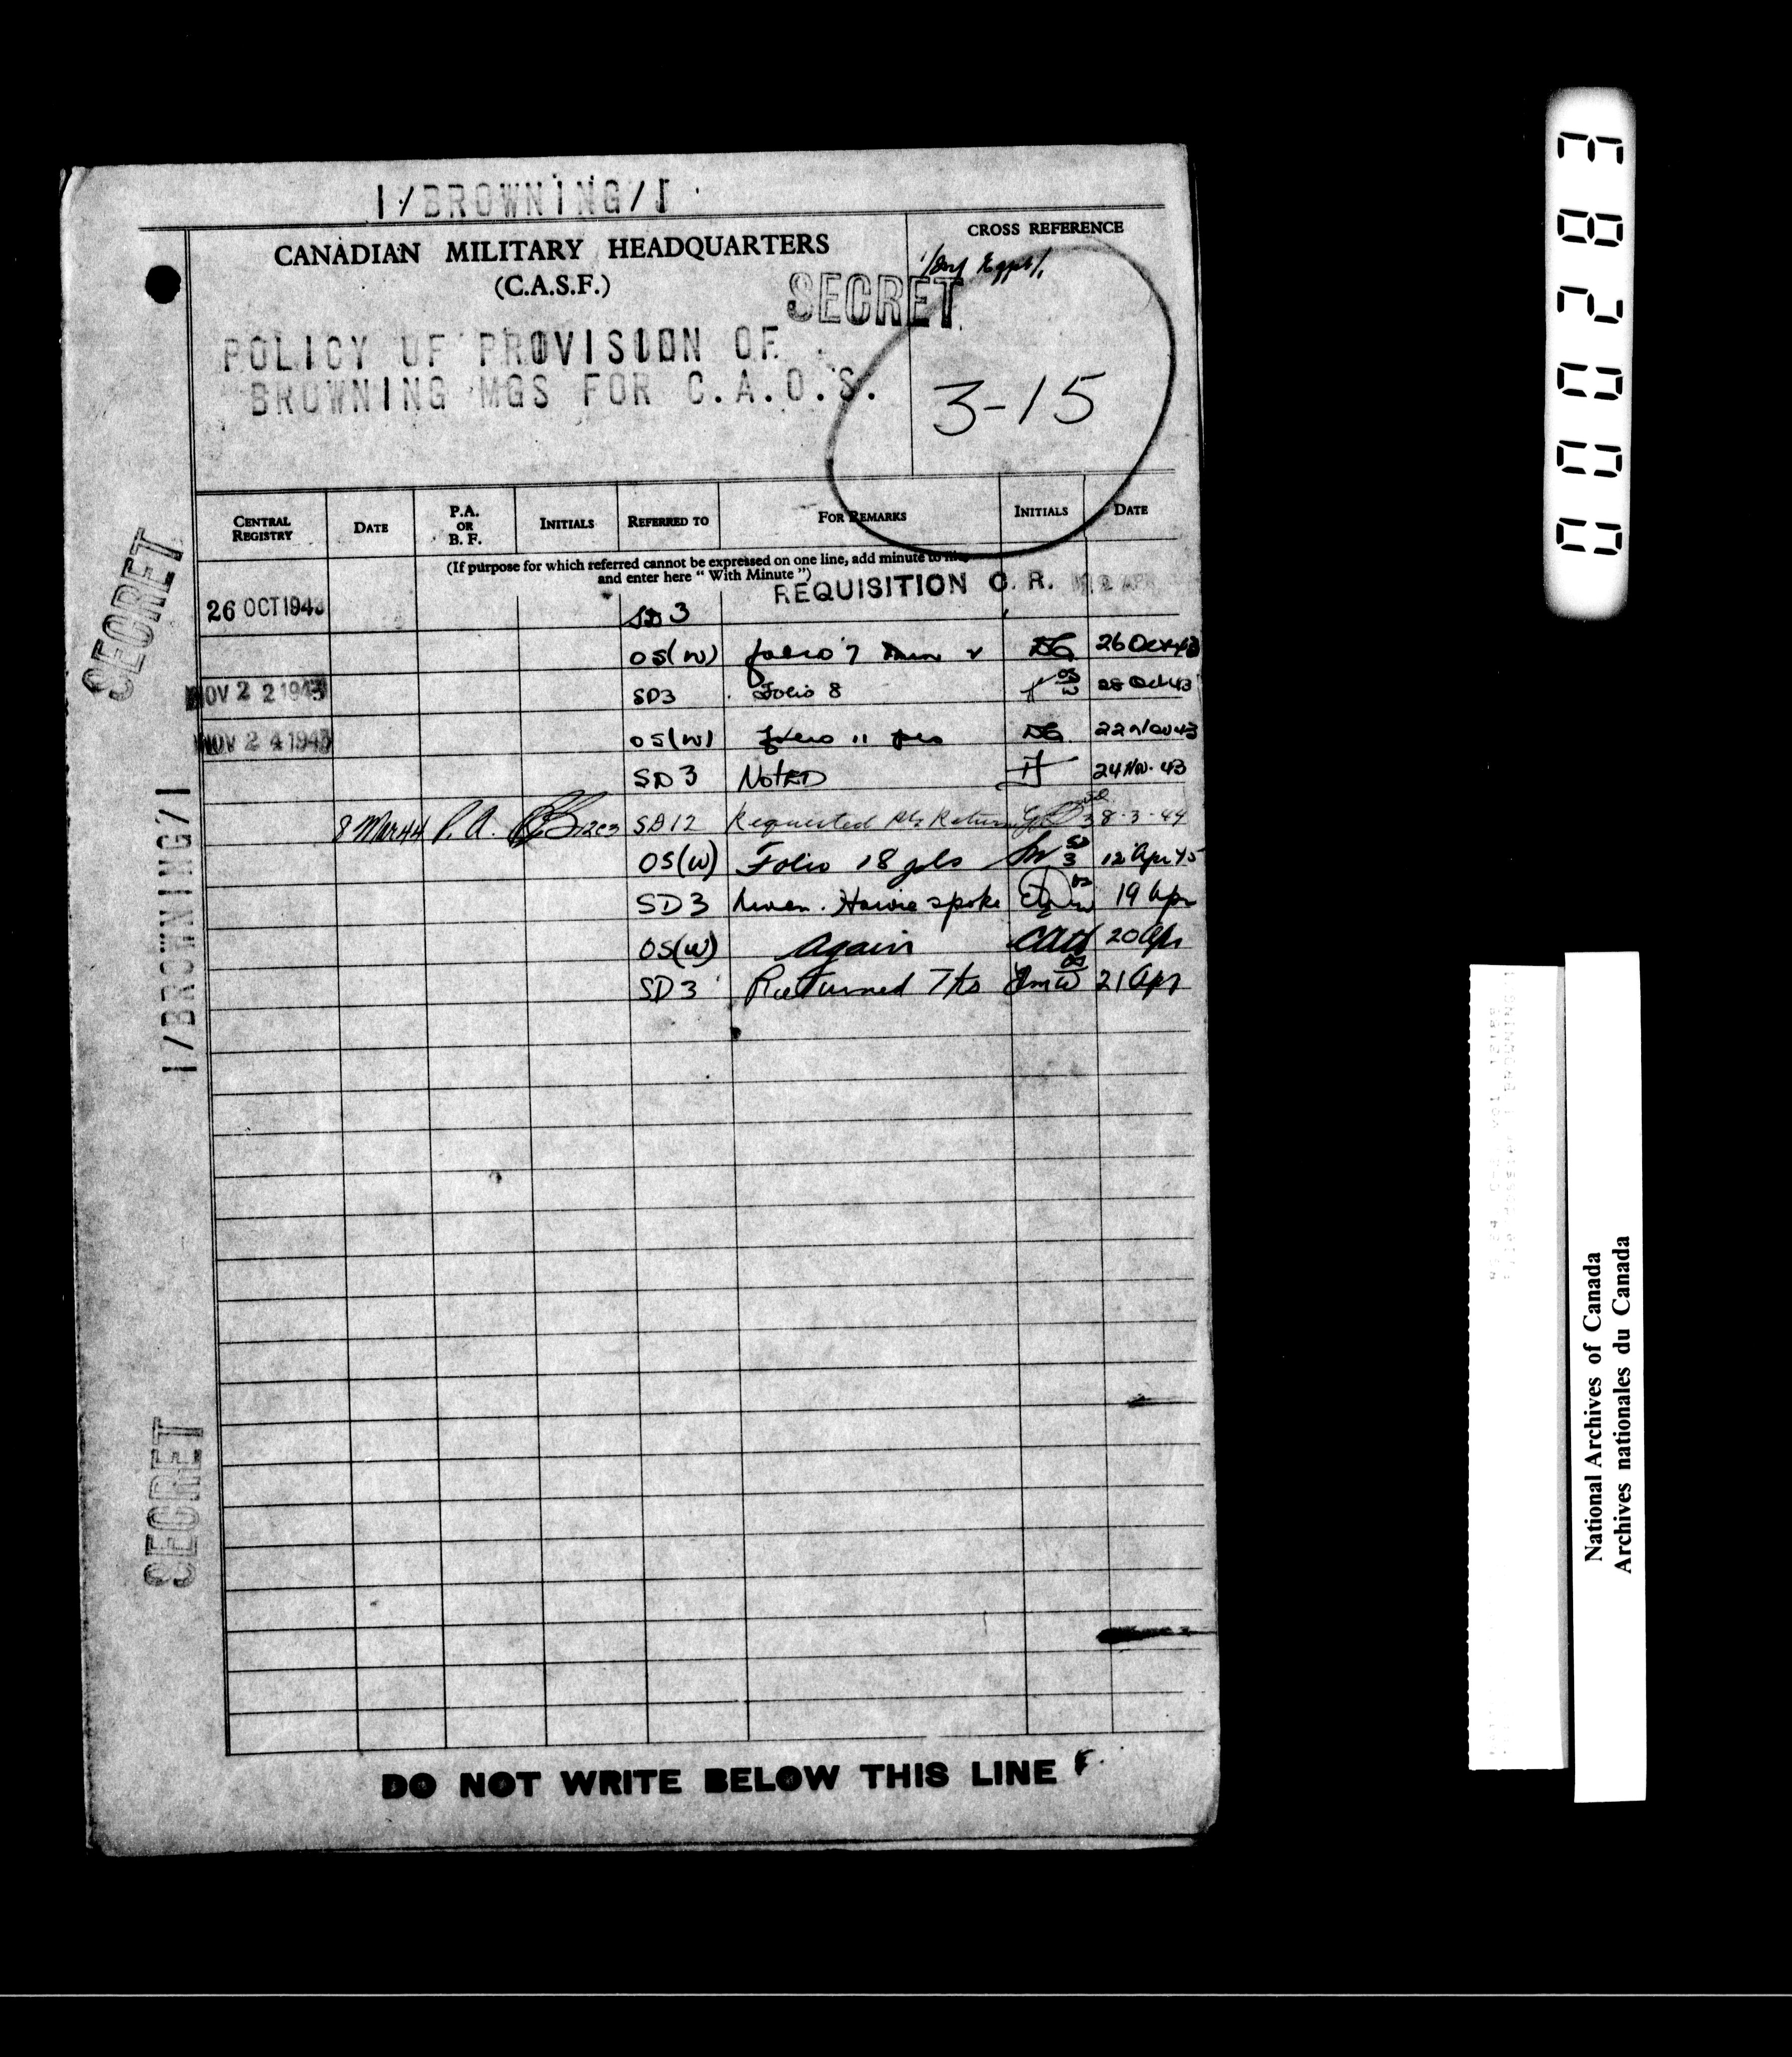 1/BROWNING/1
CANADIAN MILITARY HEADQUARTERS
(C.A.S.F.)
SECRET
CROSS REFERENCE
POLICY OF PROVISION OF
BROWNING MGS FOR C.A.O.'S.
3-15
CENTRAL REGISTRY DATE P.A. OR B. F. INITIALS REFERRED TO FOR REMARKS INITIALS DATE
(If purpose for which referred cannot be expressed on one line, add minute to
and enter here " With Minute ")
REQUISITION C. R. APR
26 OCT 1943 SD 3
OS(W) folio 7 26 Oct 43
NOV 22 1943 SD3 Folio 8 28 Oct 43
NOV 24 1943 OS(W) folio 11 pls 22 Nov 43
SD 3 NOTED 24 Nov. 43
8 Mar 44 P.A. SD12 Requested Pls Return 8.3.44
OS(W) Folio 18 pls SD 3 12 Apr 45
SD 3 spoke 19 Apr
OS(W) again 20 Apr
SD 3 Returned 7ks 21 Apr
DO NOT WRITE BELOW THIS LINE
SECRET
1/BROWNING/1
SECRET
000283
National Archives of Canada
Archives nationales du Canada